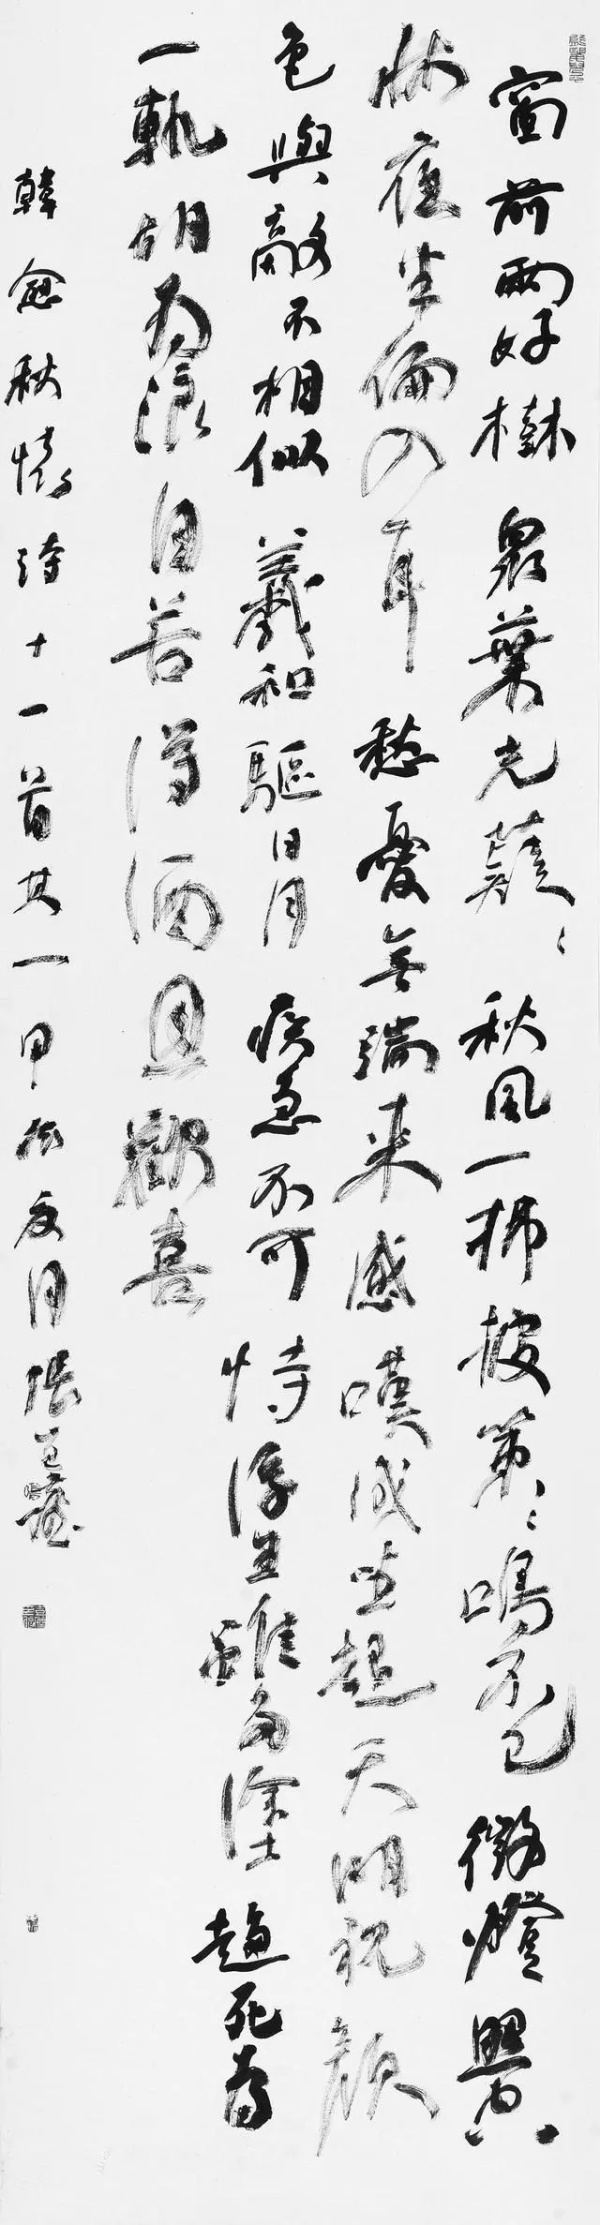 窗前兩好樹衆葉光薿〻秋風一拂披策〻鳴不已微燈照空
牀夜半偏入耳愁憂無端来感嘆成坐起天明視顏
色與故不相似羲和驅日月疾急不可恃浮生雖多塗趨死為
一軌胡為浪自苦得酒且歡喜
韓愈秋懷詩十一首其一甲辰夏月張